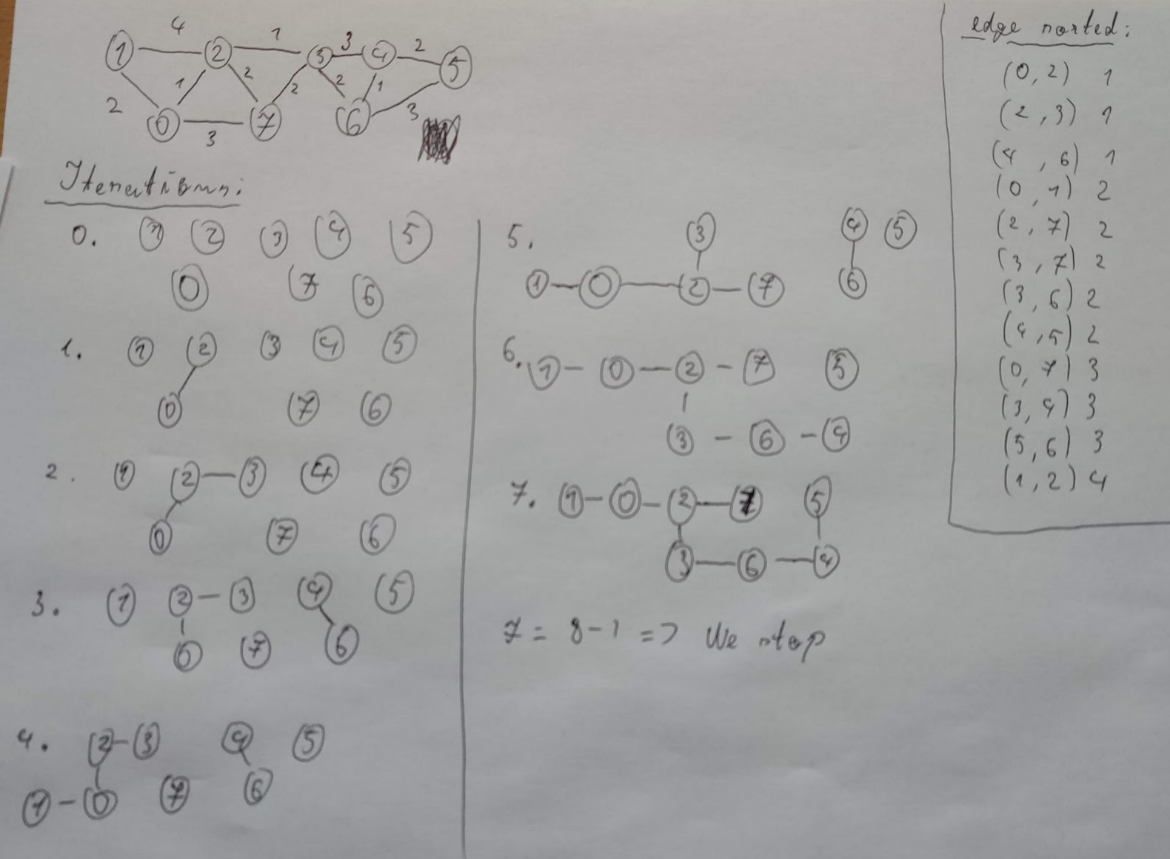 4 1 3 2
1 2 3 4 5
1 2 2 2 1
2 3 3
0 7 6
Iterations:
0. 1 2 3 4 5
0 7 6
1. 1 2 3 4 5
0 7 6
2. 1 2 3 4 5
0 7 6
3. 1 2 3 4 5
0 7 6
4. 2 3 4 5
1 0 7 6
5. 3 4 5
1 0 2 7 6
6. 1 0 2 7 5
3 6 4
7. 1 0 2 7 5
3 6 4
7 = 8-1 => We stop
edge sorted:
(0, 2) 1
(2, 3) 1
(4, 6) 1
(0, 1) 2
(2, 7) 2
(3, 7) 2
(3, 6) 2
(4, 5) 2
(0, 7) 3
(3, 4) 3
(5, 6) 3
(1, 2) 4